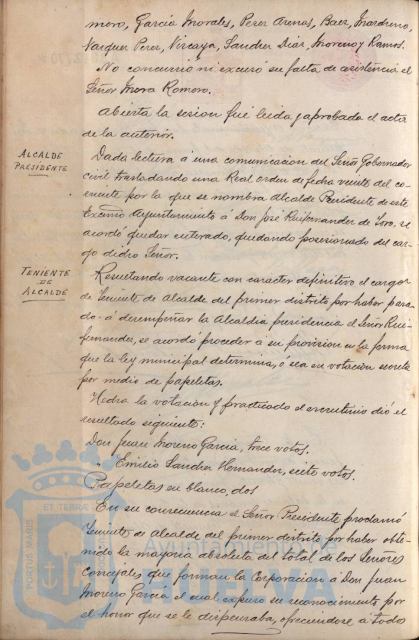 moro, García Morales, Perez Arenas, Baez, Mardreno,
Vazquez Perez, Vizcaya, Sanchez Diaz, Moreno y Ramos.
No concurrió ni excusó su falta de asistencia el
Señor Mora Romero.
Abierta la sesion fué leida y aprobada el acta
de la anterior.
ALCALDE
PRESIDENTE
Dada lectura á una comunicacion del Señor Gobernador
civil trasladando una Real orden de fecha veinte del co-
rriente por la que se nombra Alcalde Presidente de este
Excmo Ayuntamiento á Don José Ruifernandez de Toro, se
acordó quedar enterado, quedando posesionado del car-
go dicho Señor.
TENIENTE
DE
ALCALDE
Resultando vacante con caracter definitivo el cargo
de Teniente de Alcalde del primer distrito por haber pasa-
do á desempeñar la Alcaldia presidencia el Señor Rui-
fernandez, se acordó proceder á su provision en la forma
que la ley municipal determina, ó sea en votacion secreta
por medio de papeletas.
Hecha la votacion y practicado el escrutinio dió el
resultado siguiente:
Don Juan Moreno García, trece votos.
" Emilio Sanchez Hernandez, siete votos.
Papeletas en blanco, dos
En su consecuencia el Señor Presidente proclamó
Teniente de Alcalde del primer distrito por haber obte-
nido la mayoria absoluta del total de los Señores
Concejales que forman la Corporacion á Don Juan
Moreno García el cual expuso su reconocimiento por
el honor que se le dispensaba, ofreciendose á todos
PORTUS MARIS
ET TERRAE
Ayuntamiento de
HUELVA